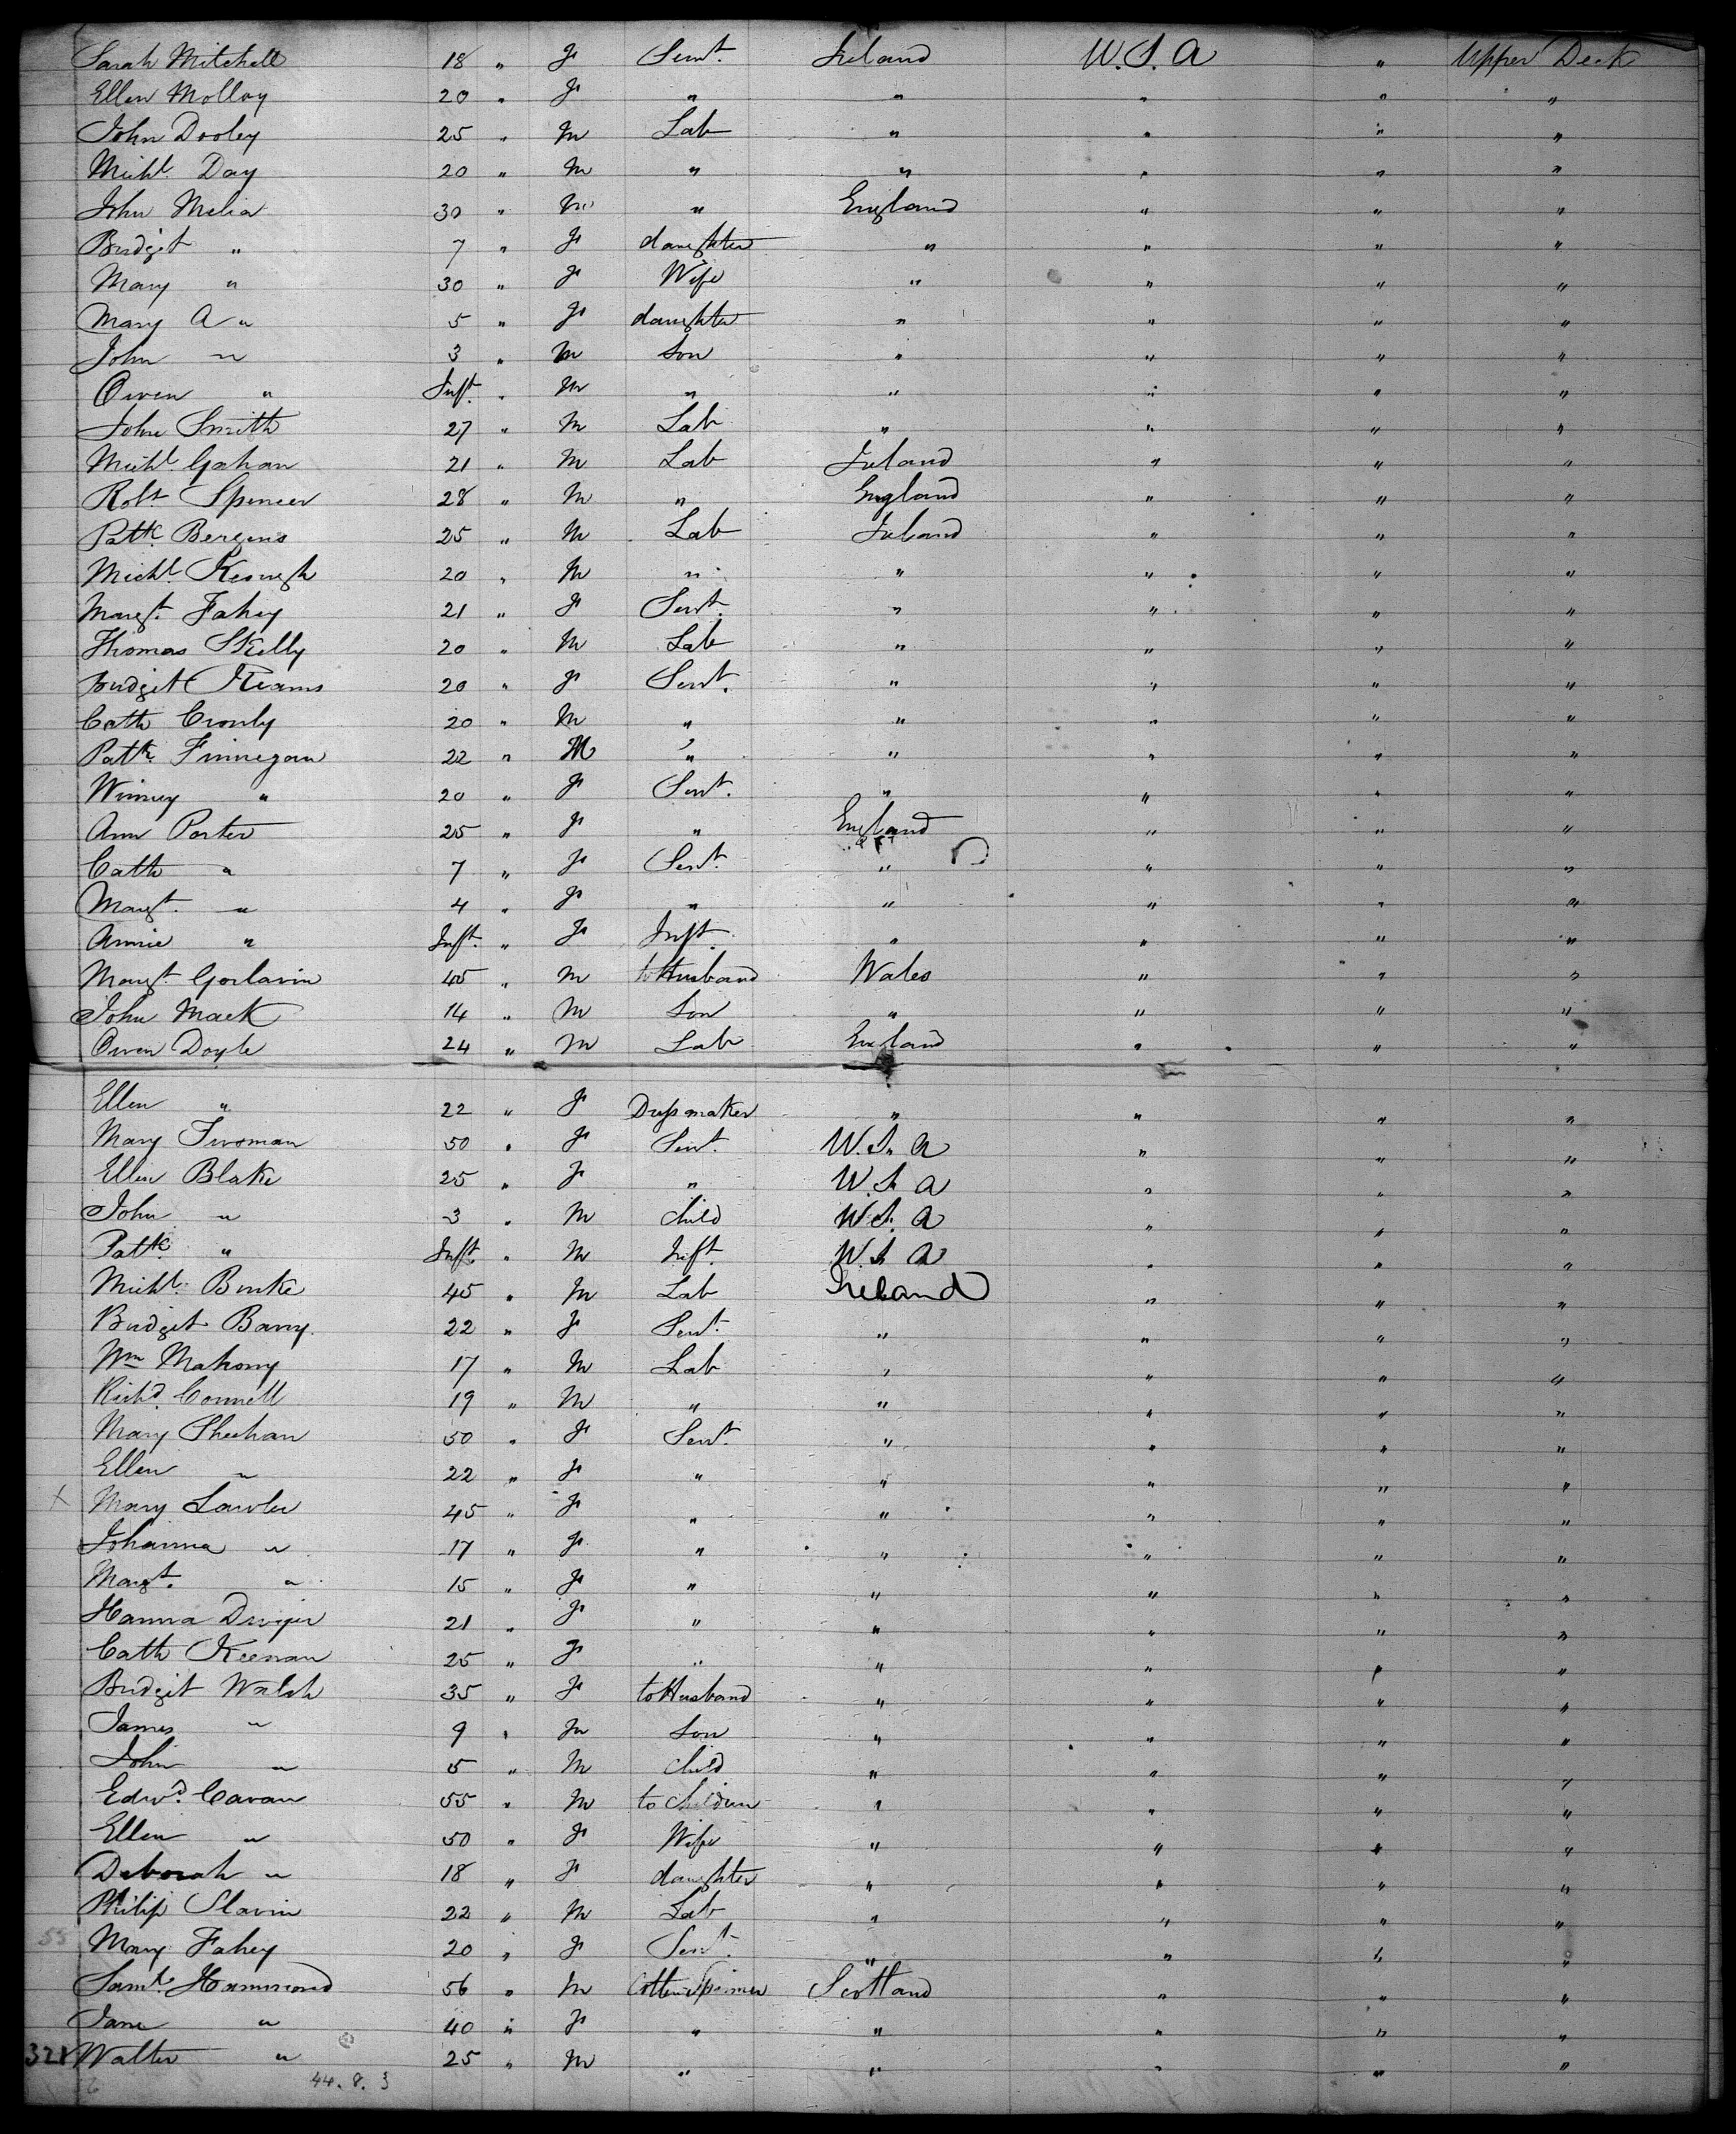 Sarah Mitchell 18 " F Servt. Ireland U.S.A " Upper Deck
Ellen Molloy 20 " F " " " " "
John Dooley 25 " M Lab " " " "
Michl. Day 20 " M " " " " "
John Melia 30 " M " England " " "
Bridget " 7 " F daughter " " " "
Mary " 30 " F Wife " " " "
Mary A " 5 " F daughter " " " "
John " 3 " M Son " " " "
Owen " Inft. " M " " " " "
John Smith 27 " M Lab " " " "
Michl. Gahan 21 " M Lab Ireland " " "
Robt. Spencer 28 " M " England " " "
Patk. Bergins 25 " M Lab Ireland " " "
Michl. Keough 20 " M " " " " "
Margt. Fahey 21 " F Servt. " " " "
Thomas Skelly 20 " M Lab " " " "
Bridget Kearns 20 " F Servt. " " " "
Cath 20 " M " " " " "
Patk. Finnegan 22 " M " " " " "
Winney " 20 " F Servt. " " " "
Ann Porter 25 " F " England " " "
Cath " 7 " F Servt. " " " "
Margt. " 4 " F " " " " "
Annie " Inft. " F Inft. " " " "
Margt. 45 " M to Husband Wales " " "
John Mack 14 " M Son " " " "
Owen Doyle 24 " M Lab England " " "
Ellen " 22 " F Dressmaker " " " "
Mary 50 " F Servt. U.S.A " " "
Ellen Blake 25 " F " U.S.A " " "
John " 3 " M Child U.S.A " " "
Patk. " Inft. " M Inft. U.S.A " " "
Michl. Burke 45 " M Lab Ireland " " "
Bridget Barry 22 " F Servt. " " " "
Wm Mahony 17 " M Lab " " " "
Richd. Connell 19 " M " " " " "
Mary Sheehan 50 " F Servt. " " " "
Ellen " 22 " F " " " " "
X Mary Lawler 45 " F " " " " "
Johanna " 17 " F " " " " "
Margt. " 15 " F " " " " "
Hanna Dwyer 21 " F " " " " "
Cath Keenan 25 " F " " " " "
Bridget Walsh 35 " F to Husband " " " "
James " 9 " M Son " " " "
John " 5 " M Child " " " "
Edwd. Cavan 55 " M to Children " " " "
Ellen " 50 " F Wife " " " "
Deborah " 18 " F daughter " " " "
Philip Slavin 22 " M Lab " " " "
55 Mary Fahey 20 " F Servt. " " " "
Saml. Hammond 56 " M Cotton Spinner Scotland " " "
Jane " 40 " F " " " " "
321 Walter " 25 " M " " " " "
44. 8. 3